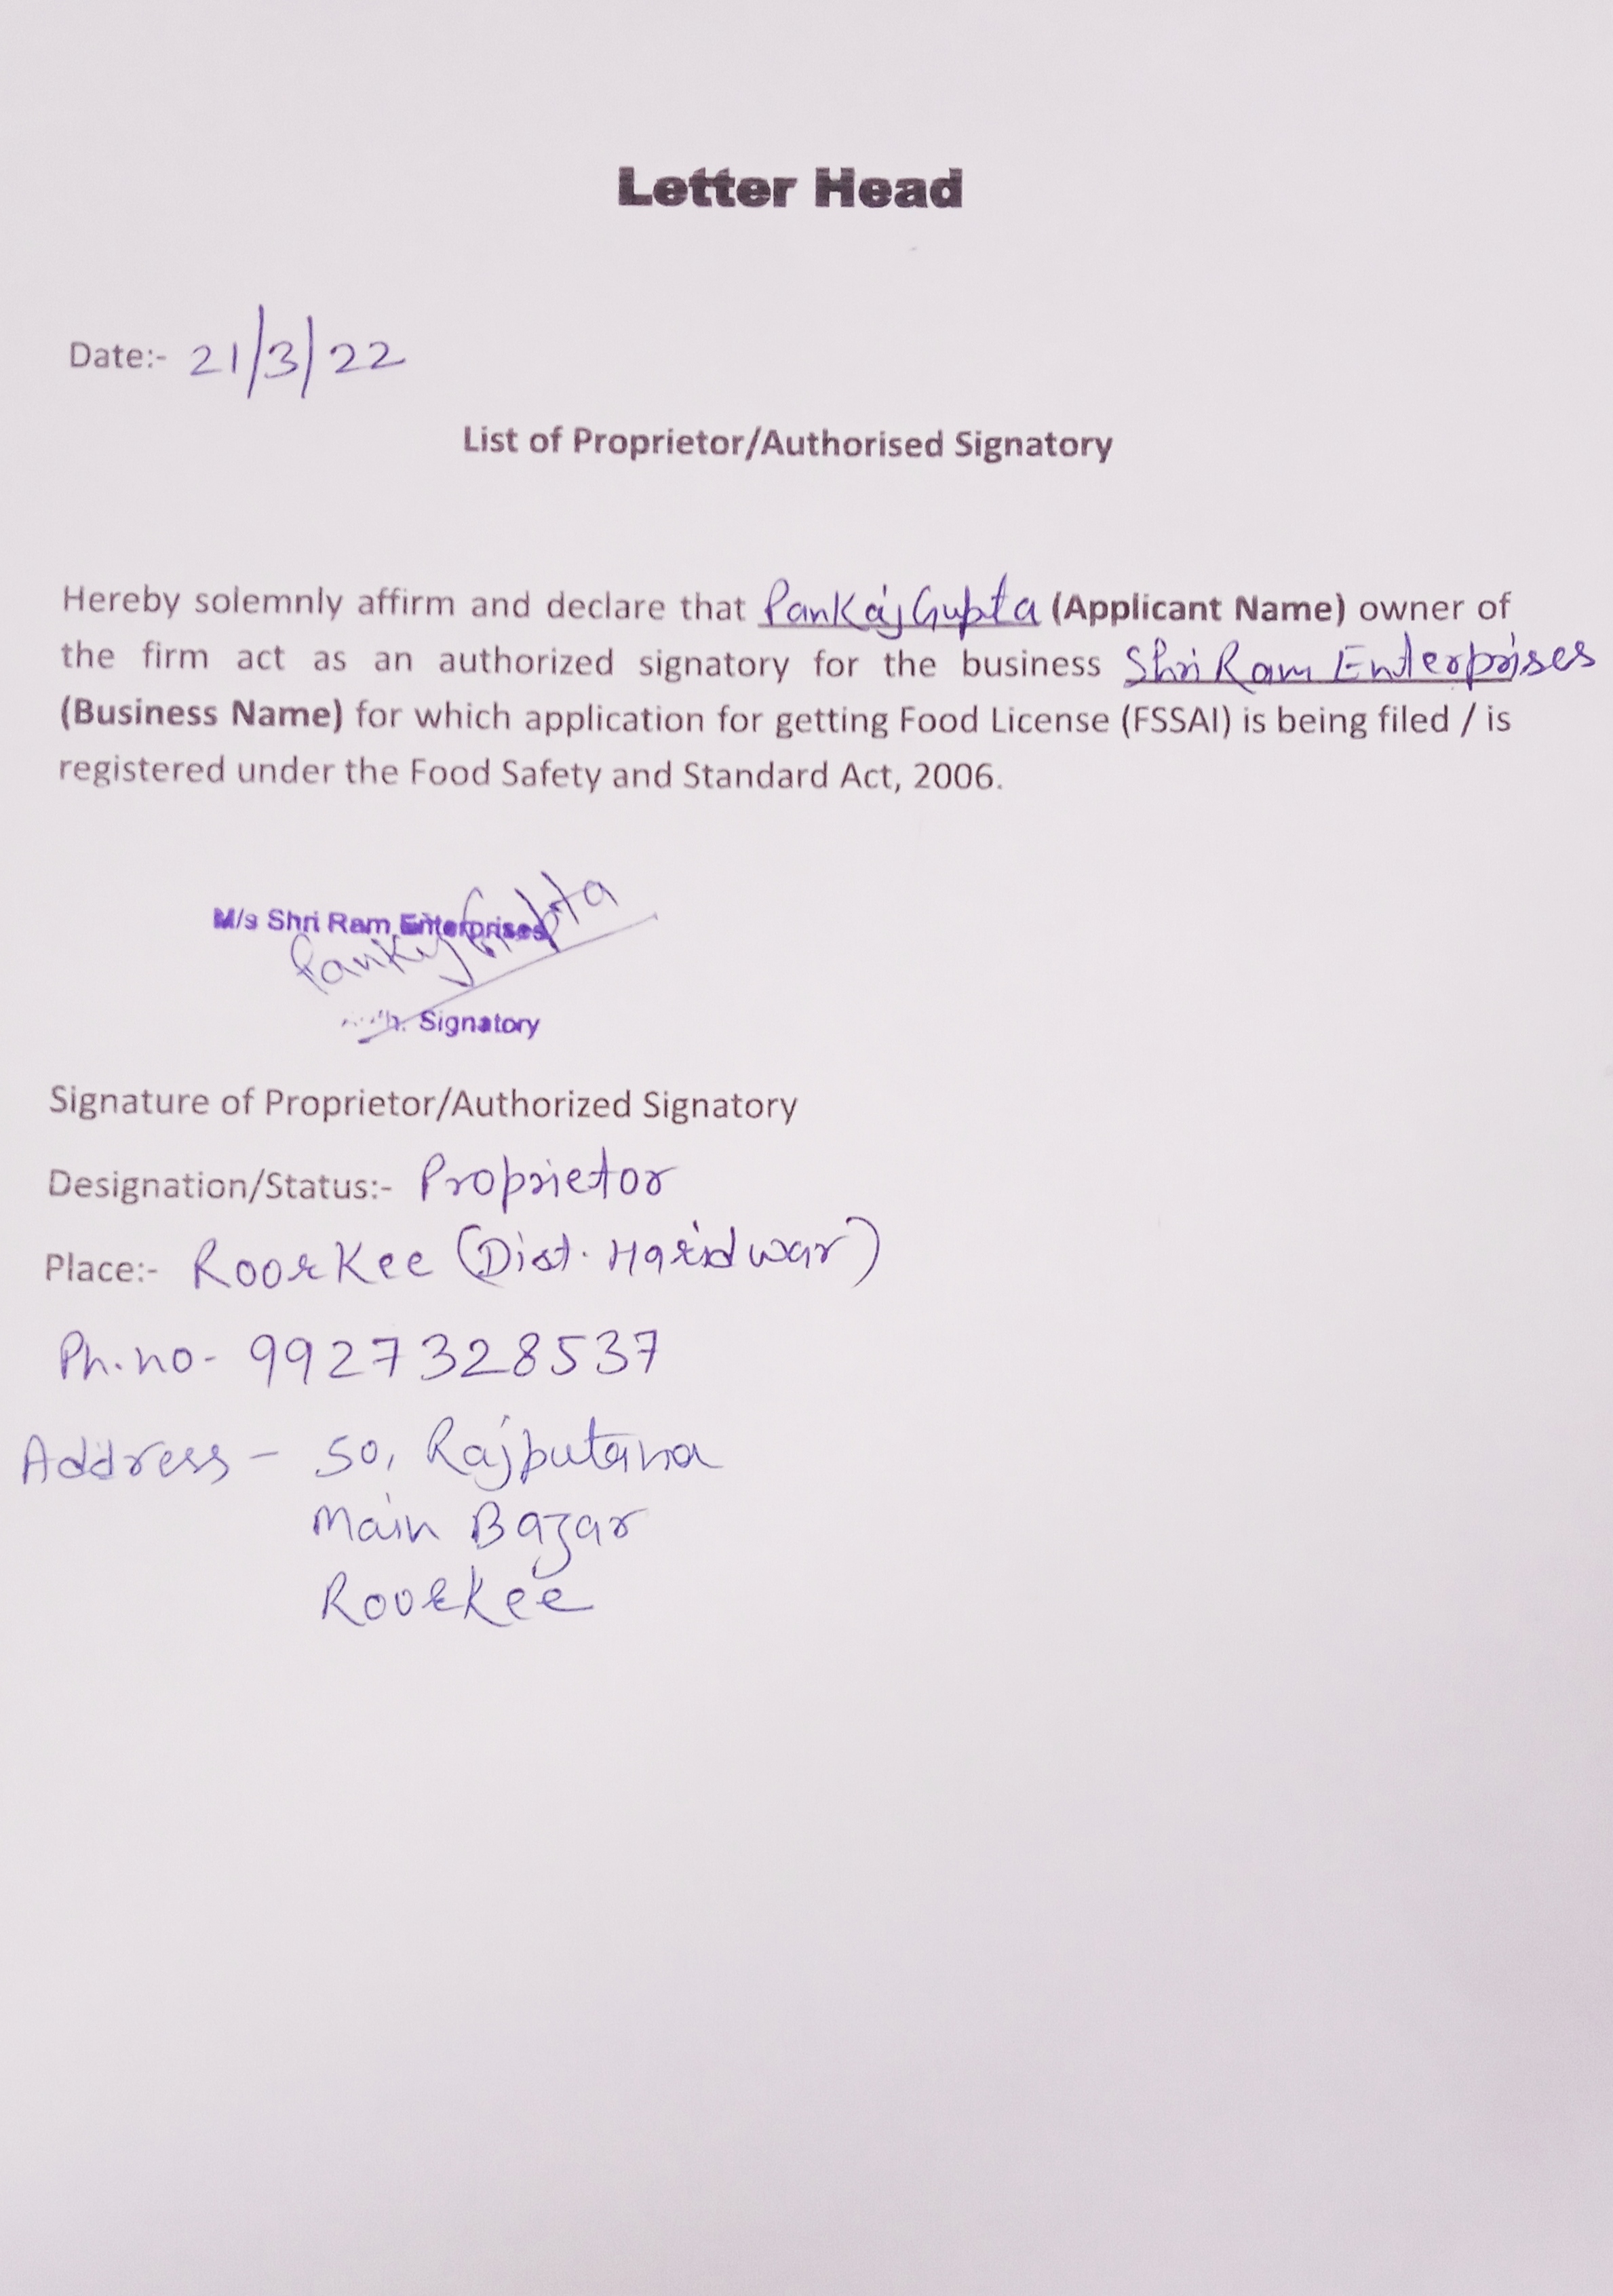 Letter Head
Date:- 21/3/22
List of Proprietor/Authorised Signatory
Hereby solemnly affirm and declare that Pankaj Gupta (Applicant Name) owner of
the firm act as an authorized signatory for the business Shri Ram Enterprises
(Business Name) for which application for getting Food License (FSSAI) is being filed / is
registered under the Food Safety and Standard Act, 2006.
M/s Shri Ram Enterprises
Pankaj Gupta
Signatory
Signature of Proprietor/Authorized Signatory
Designation/Status:- Proprietor
Place:- Roorkee (Dist. Haridwar)
Ph.no- 9927328537
Address - 50, Rajputana
Main Bazar
Roorkee